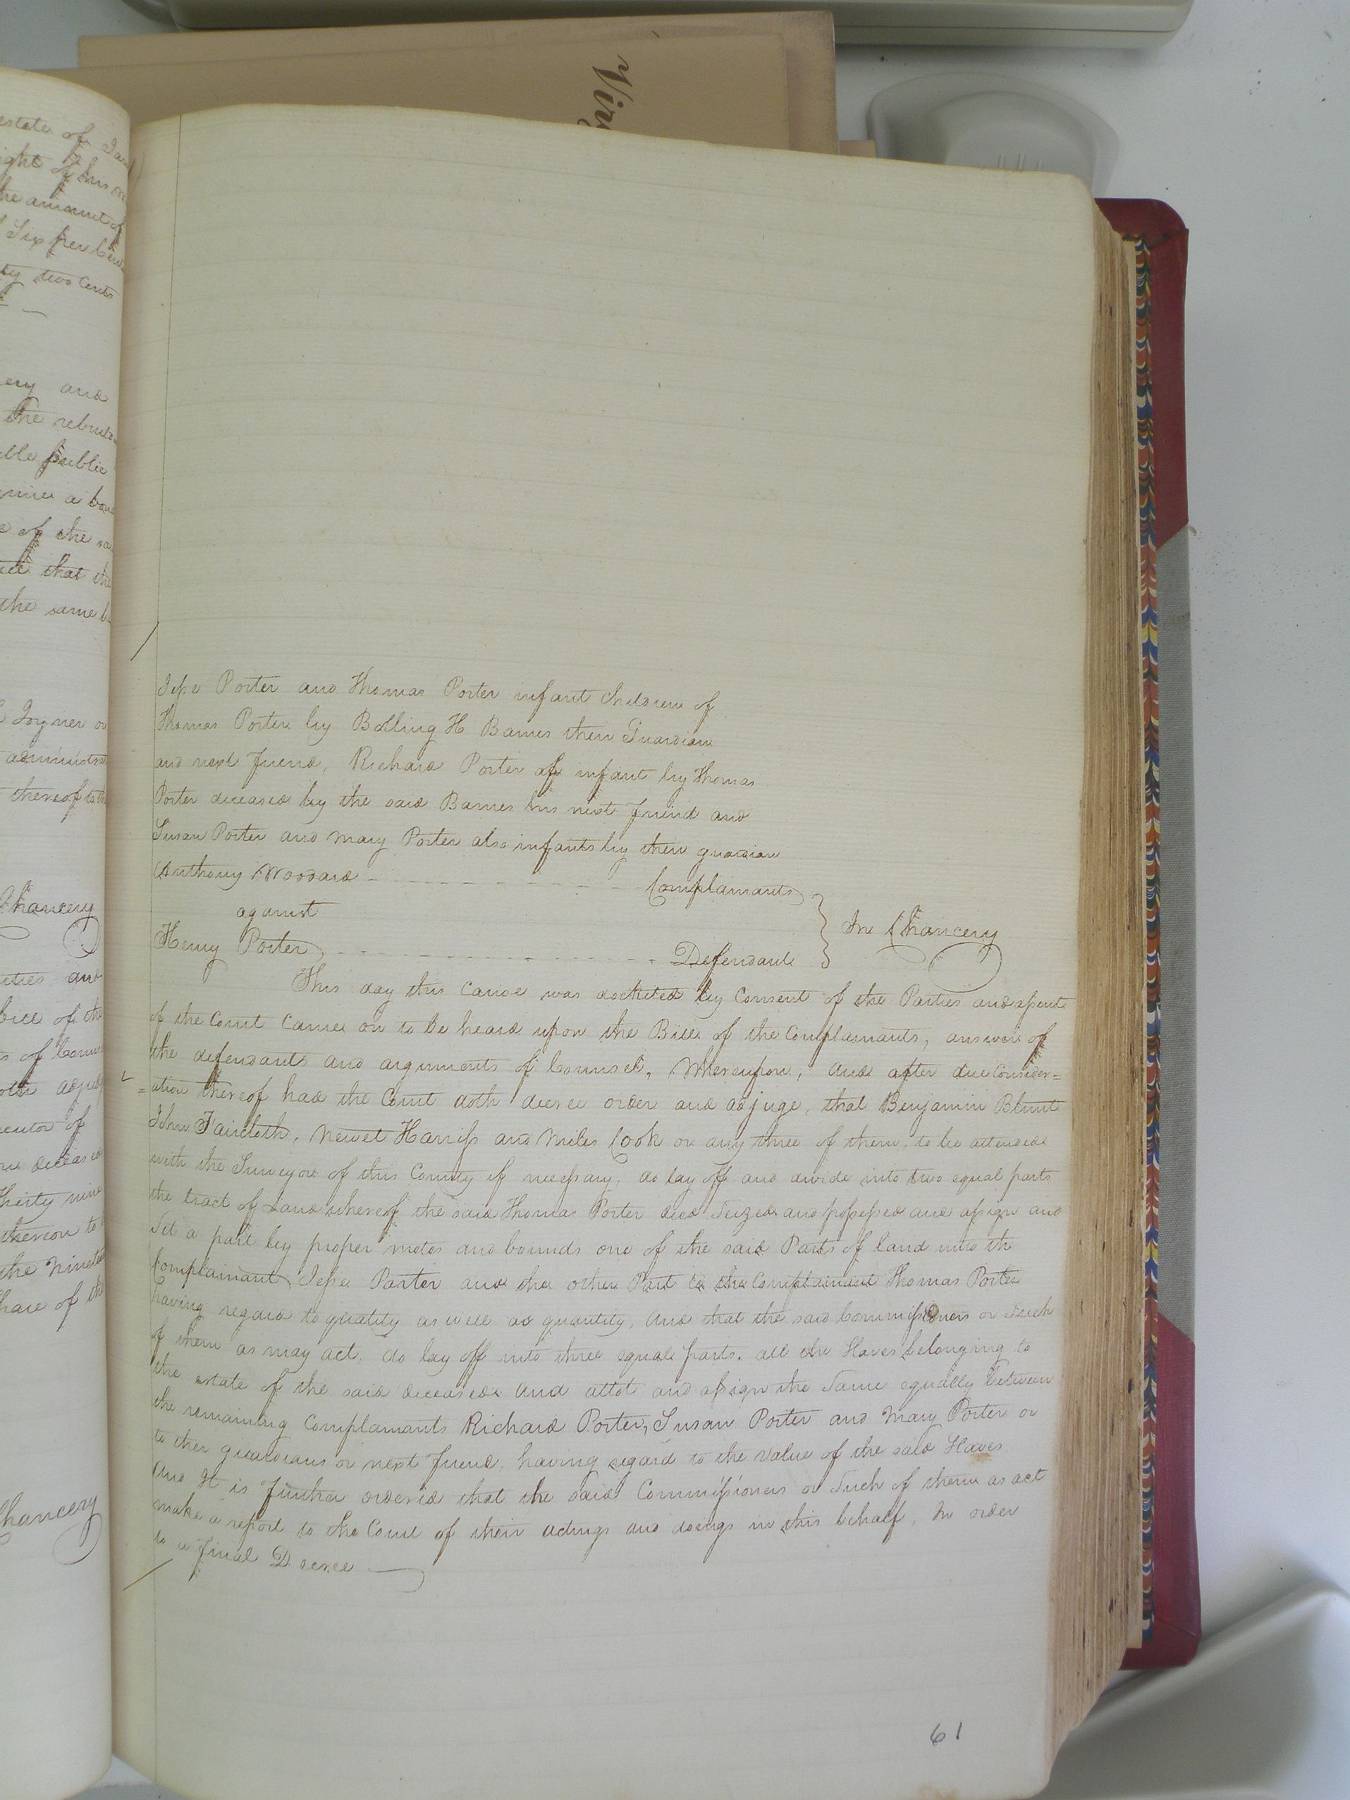 Vir
estate of
ight of his
he amount of
Six per Cen
ty two Cents
ery and
the rebuta
ble public
a bond
of the
that the
the same
Joyner or
administra
thereof to
Chancery
ities and
bill of the
of Couns
oth adjud
ecutor of
deceased
thirty nine
thereon to
the Ninete
hare of the
Chancery
Jesse Porter and Thomas Porter infant Children of
Thomas Porter by Bolling H Barnes their Guardian
and next friend, Richard Porter of infant by Thomas
Porter deceased by the said Barnes his next friend and
Susan Porter and Mary Porter also infants by their guardian
Anthony Woodard Complainants
against In Chancery
Henry Porter, Defendant
This day this cause was docketed by Consent of the Parties and
of the Court came on to be heard upon the Bill of the Complainants, answer of
the defendants and arguments of Counsel, Whereupon, and after due Consider=
=ation thereof had the Court doth decree order and adjuge, that Benjamin Blunt
John Faircloth, Newet Harriss and Miles Cook or any three of them, to be attended
with the Surveyor of this County if necessary, do lay off and divide into two equal parts
the tract of Land whereof the said Thomas Porter died Seized and possessed and assign and
Set a part by proper metes and bounds one of the said Parts of land unto the
Complainant Jesse Porter and the other Part to the Complainant Thomas Porter
having regard to quality as well as quantity, And that the said Commissioners or Such
of them as may act, do lay off into three equal parts, all the Slaves belonging to
the estate of the said deceased and allot and assign the Same equally between
the remaining Complainants Richard Porter, Susan Porter and Mary Porter or
to their guardians or next friend, having regard to the value of the said Slaves
And It is further ordered that the said Commissioners or Such of them as act
make a report to the Court of their actings and doings in this behalf, In order
to a final Decree
61